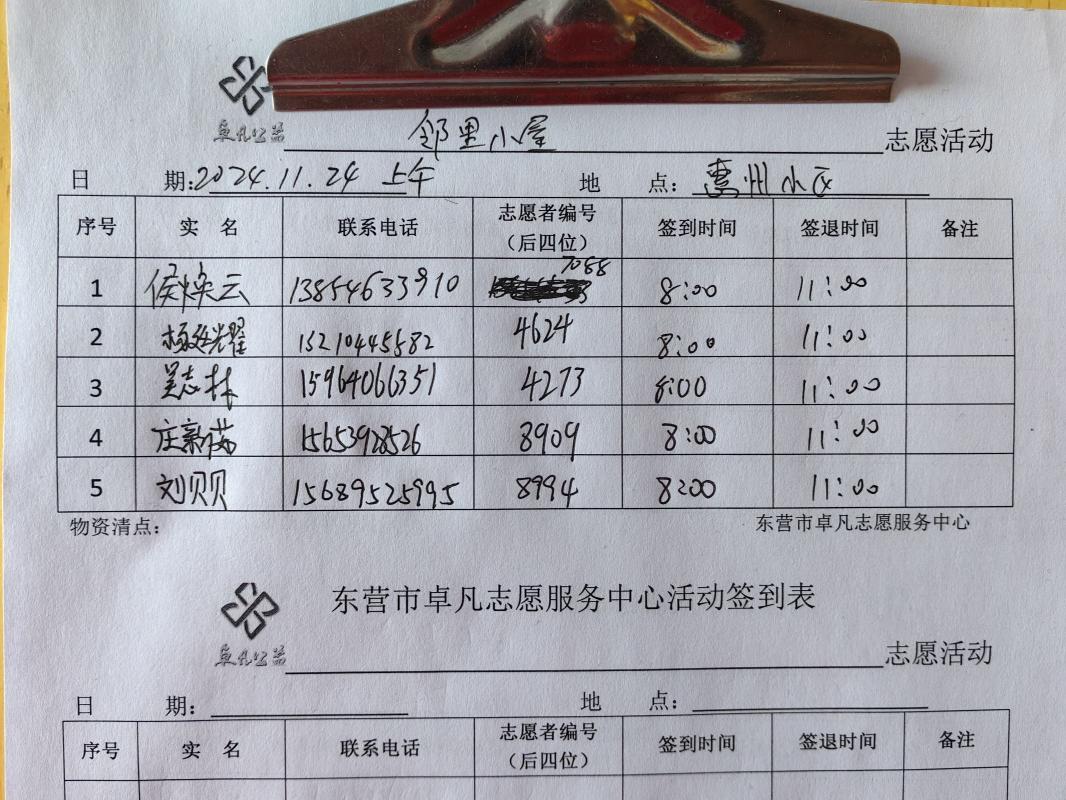 卓凡公益
邻里小屋 志愿活动
日 期: 2024.11.24 上午 地 点: 惠州小区
序号 实 名 联系电话 志愿者编号（后四位） 签到时间 签退时间 备注
1 侯焕云 13854633910 7088 8:00 11:00
2 杨延耀 15210445582 4624 8:00 11:00
3 吴志林 15964066351 4273 8:00 11:00
4 庄新茹 15653928526 8909 8:00 11:00
5 刘贝贝 15689525995 8994 8:00 11:00
物资清点： 东营市卓凡志愿服务中心
东营市卓凡志愿服务中心活动签到表
卓凡公益
志愿活动
日 期: 地 点:
序号 实 名 联系电话 志愿者编号（后四位） 签到时间 签退时间 备注